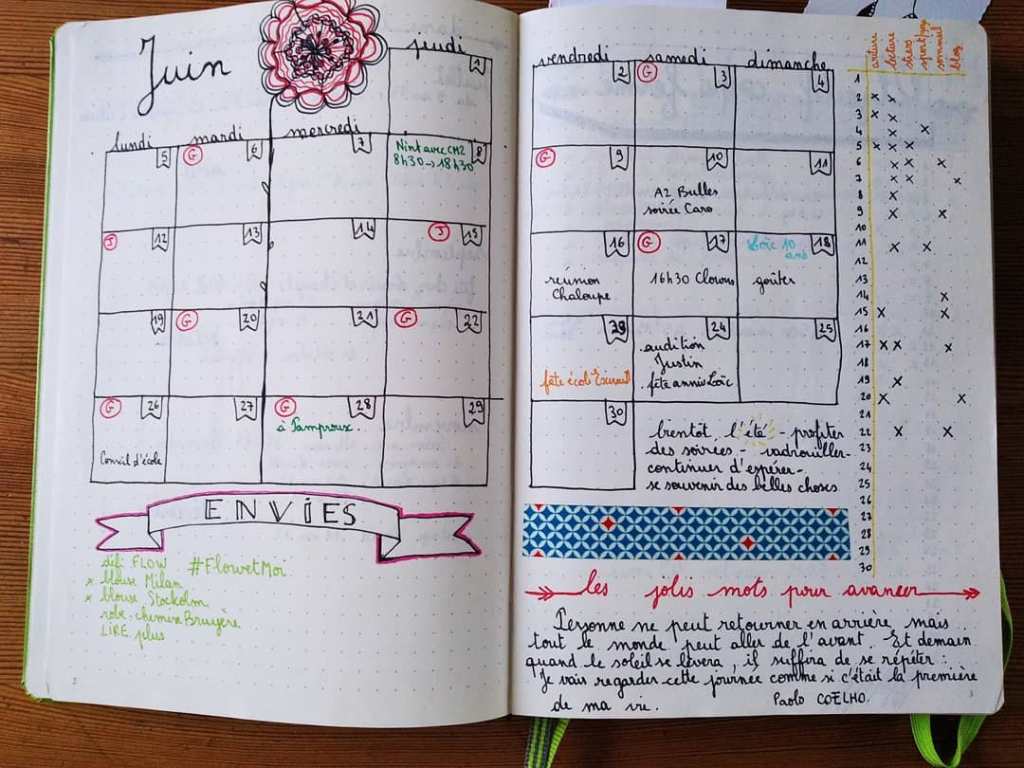 Juin
lundi
mardi
mercredi
jeudi
1
5
G 6
7
8
Nint avec CM2
8h30 → 18h30
J 12
13
14
J 15
19
G 20
21
G 22
G 26
27
G 28
29
Conseil d'école
à Tamproux..
ENVIES
défi FLOW #FlowetMoi
x blouse Milan
x blouse Stockolm
robe chemise Bruyère
LIRE plus
2
vendredi
samedi
dimanche
2
G 3
4
G 9
10
11
A2 Bulles
soirée Caro
16
G 17
18
Loïc 10
ans
réunion
Chaloupe
16h30 Clowns
goûter
24
25
fête école
audition
Justin
fête annivLoïc
30
bientôt l'été - profiter
des soirées - vadrouiller-
continuer d'espérer-
se souvenir des belles choses
lecture
sommeil
blog
1
2 x x
3 x x
4 x x
5 x x x
6 x x x
7 x x x
8 x
9 x x
10
11 x x
12
13
14 x
15 x x
16
17 x x x
18
19 x
20 x x
21
22 x x
23
24
25
26
27
28
29
30
les jolis mots pour avancer
Personne ne peut retourner en arrière, mais
tout le monde peut aller de l'avant. Et demain
quand le soleil se lèvera, il suffira de se répéter :
Je vais regarder cette journée comme si c'était la première
de ma vie. Paolo COELHO.
3